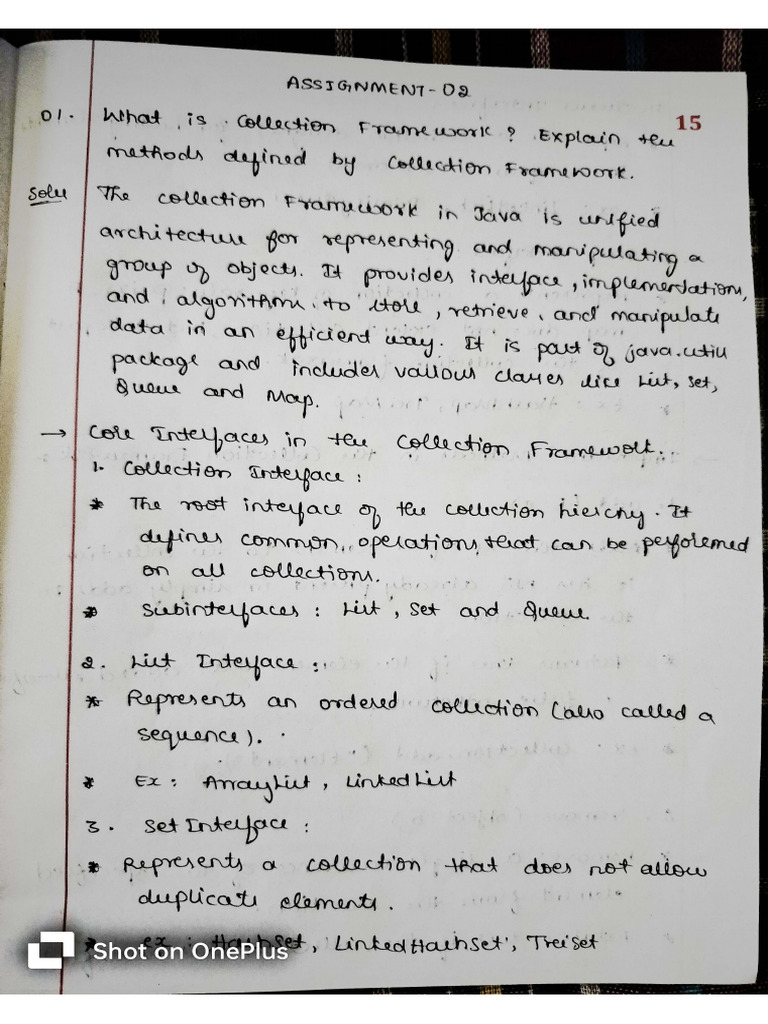 ASSIGNMENT-02
15
01. What is Collection Framework? Explain the
methods defined by Collection Framework.
Solu The collection Framework in Java is unified
architecture for representing and manipulating a
group of objects. It provides interface, implementations,
and algorithms to store, retrieve, and manipulate
data in an efficient way. It is part of java.util
package and includes various classes like List, Set,
Queue and Map.
→ Core Interfaces in the Collection Framework.
1. Collection Interface:
* The root interface of the collection hierchy. It
defines common operations that can be performed
on all collections.
* Subinterfaces: List, Set and Queue.
2. List Interface:
* Represents an ordered collection (also called a
sequence).
* Ex: ArrayList, LinkedList
3. Set Interface:
* Represents a collection that does not allow
duplicate elements.
* ex: HashSet, LinkedHashSet, TreeSet
Shot on OnePlus